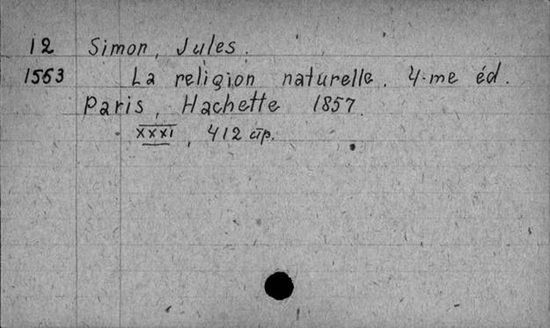 12 Simon, Jules.
1563 La religion naturelle. 4-me éd.
Paris, Hachette 1857.
XXXI, 412 стр.